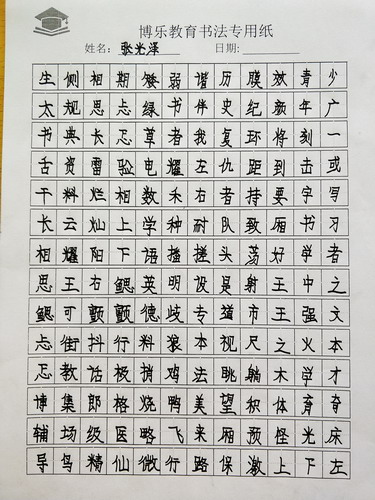 博乐教育书法专用纸
姓名: 张光泽 日期:
生侧相期矮弱谐历膜放青少
太规思忐绿书伴史纪颜年广
书典长忍草者我复环将刻一
舌资雷验电耀左仇距到击或
干料烂相数禾右者持要字写
长云灿上学种耐队致厢书习
相耀阳下语播搓头荡好学者
思王右鳃英明设是射王中之
鳃可颤颤德歧专道市王强文
忐街抖行料狼本视尺之火本
怎教话极捎鸡法眺躺木学才
博集郎格烧鸭美望积体育奇
辅场级医略飞来厢预怪光床
导鸟精仙微行路保激上下左